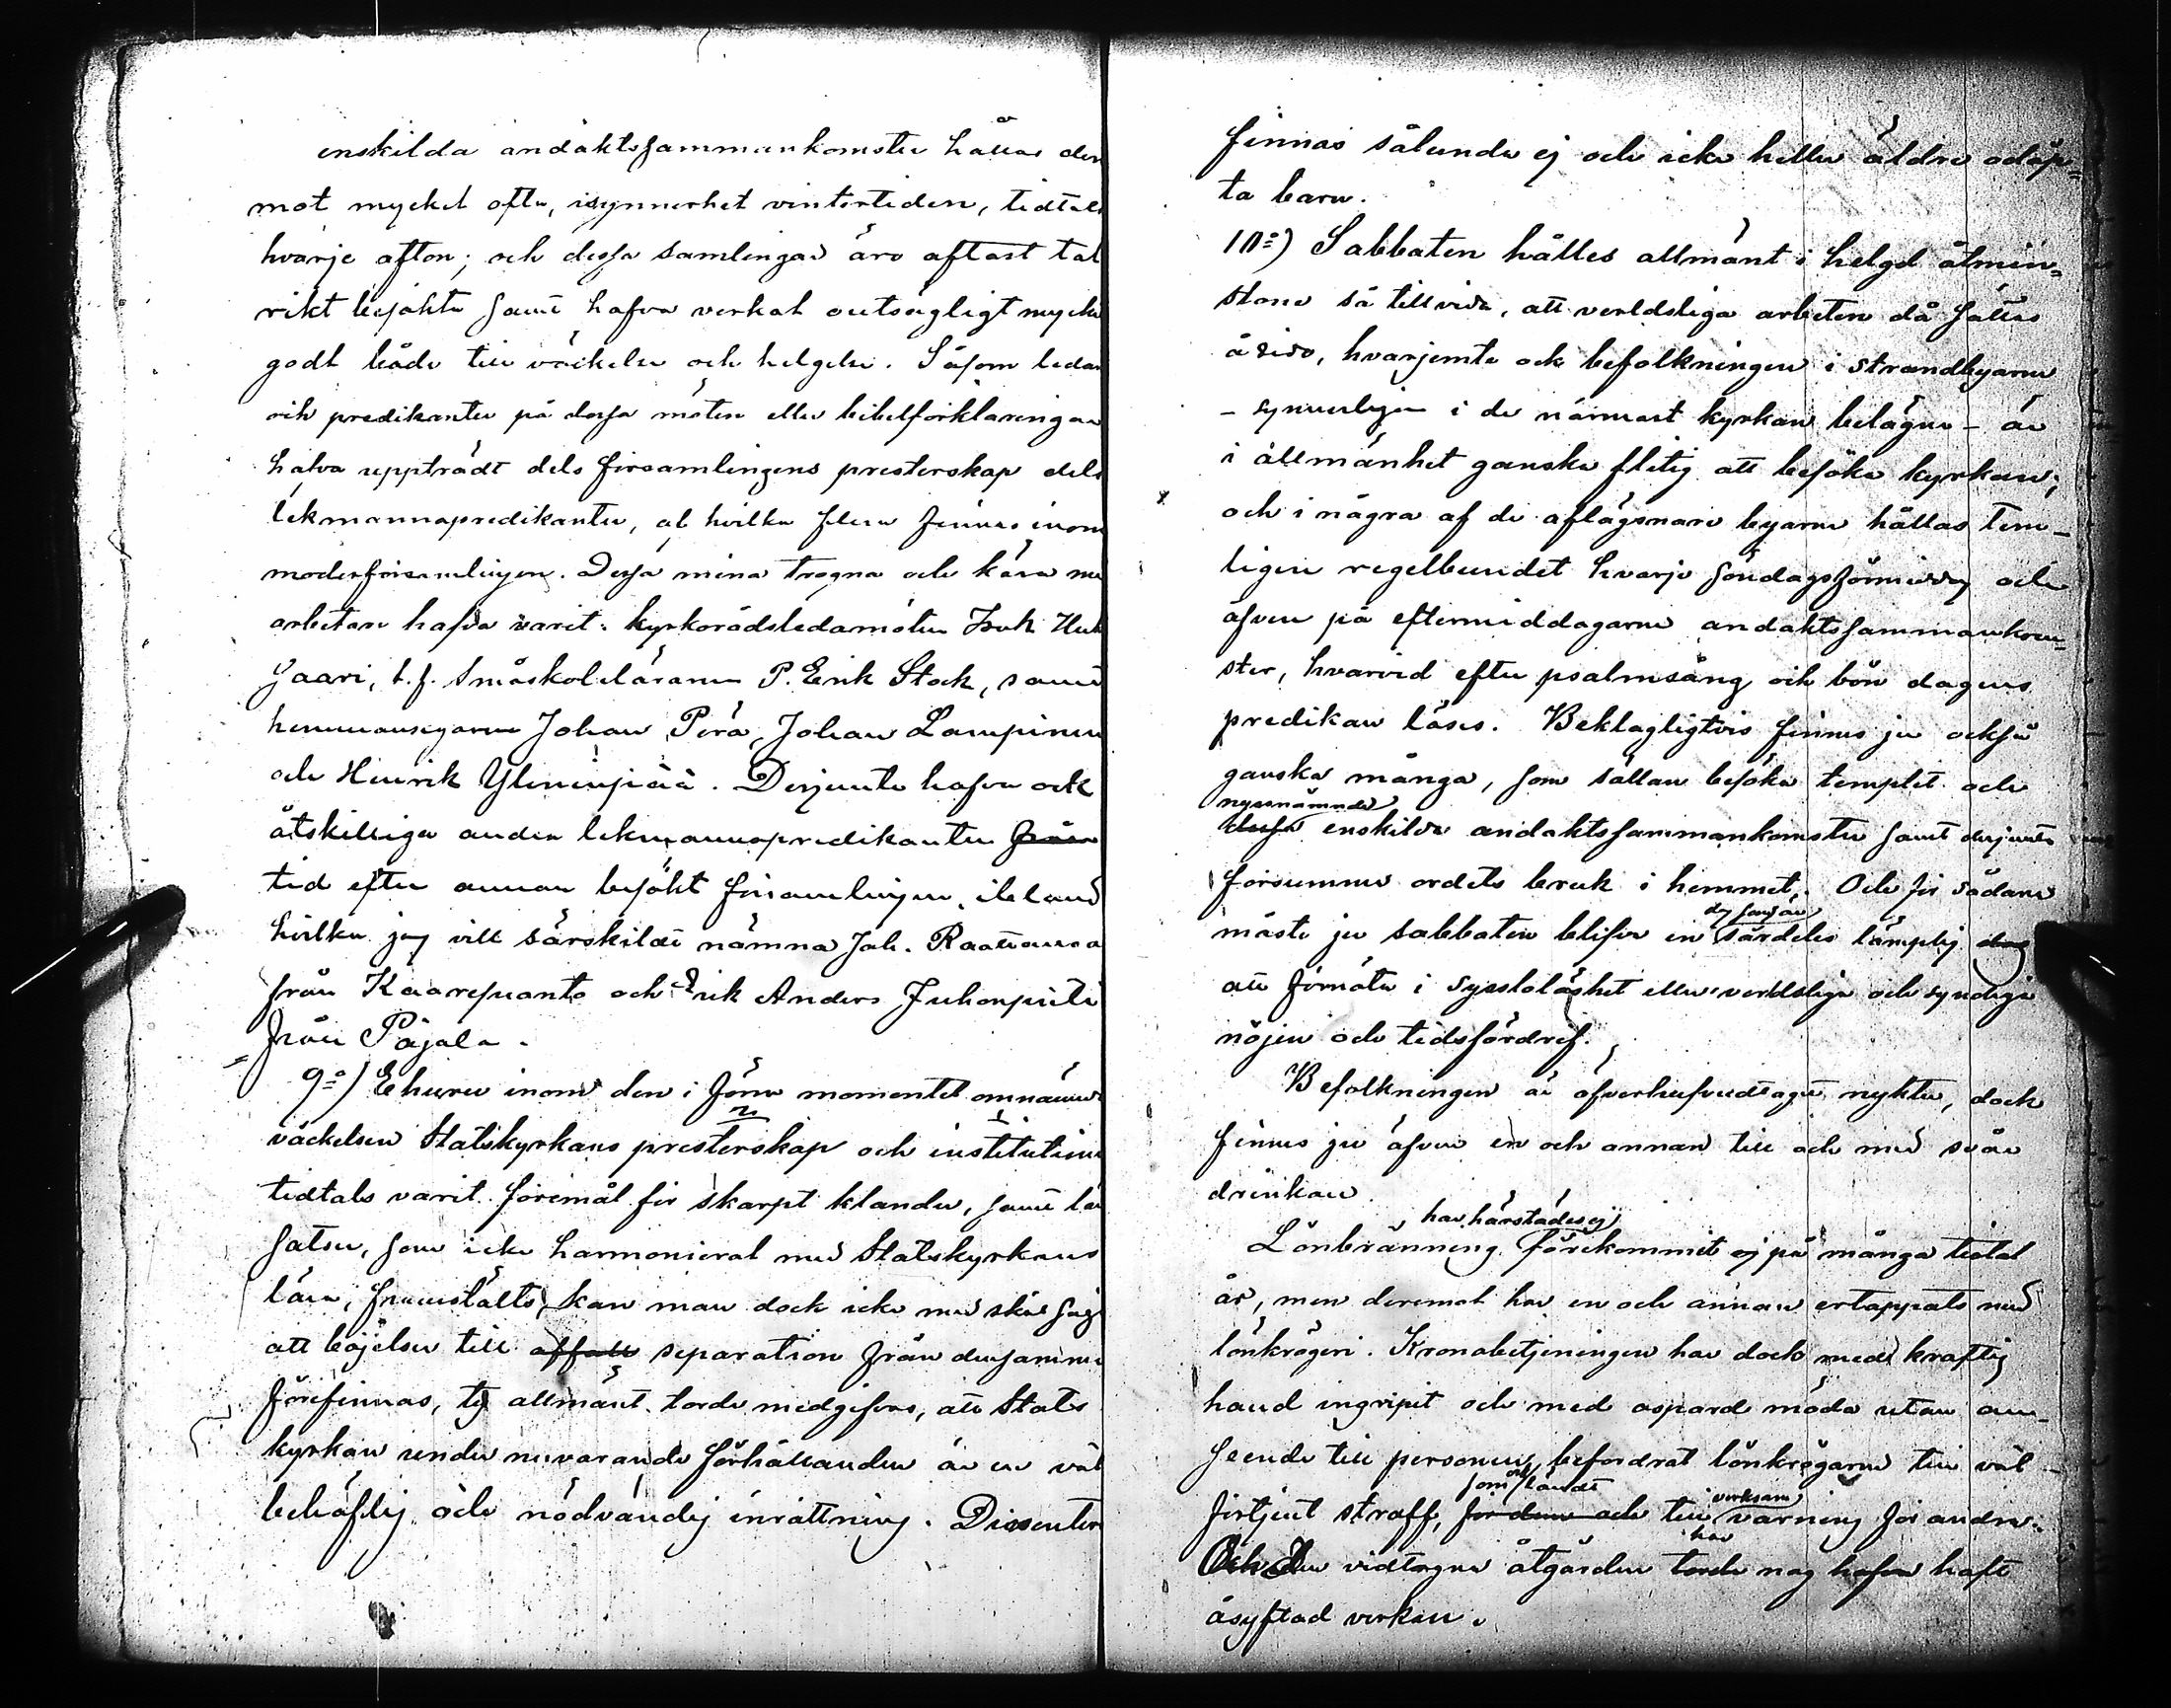 enskilda andaktssammankomster hållas der
mot mycket ofta, isynnerhet vintertiden, tidtals
hvarje afton; och dessa samlingar äro oftast tal
rikt besökta samt hafva verkat outsägligt mycke
godt både till väckelse och helgelse. Såsom ledar
och predikanter på dessa möten eller bibelförklaringar
hafva uppträdt dels församlingens presterskap dels
lekmannapredikanter, af hvilka flera finnas inom
moderförsamlingen. Dessa mina trogna och kära me
arbetare hafva varit: kyrkorådsledamoten Isak Huh
saari, t.f. småskoleläraren P. Erik Stock, samt
hemmansegarne Johan Perä, Johan Lampinen
och Henrik Ylinenpää. Derjemte hafva ock
åtskilliga andra lekmannapredikanter från
tid efter annan besökt församlingen, ibland
hvilka jag vill särskildt nämna Joh. Raattamaa
från Kaaresuanto och Erik Anders Juhonpieti
från Pajala.
9:o) Ehuru inom den i förra momentet omnämnda
väckelsen Statskyrkans presterskap och institutioner
tidtals varit föremål för skarpt klander, samt lär
satser, som icke harmonierat med Statskyrkans
lära, framstälts, kan man dock icke med skäl säga
att böjelse till affall separation från densamma
förefinnas, ty allmänt torde medgifvas, att Stats
kyrkan under nuvarande förhållanden är en väl
behöflig och nödvändig inrättning. Dissenter
finnas sålunda ej och icke heller äldre odöp=
ta barn.
10:o) Sabbaten hålles allmänt i helgd åtmin=
stone så tillvida, att verldsliga arbeten då sättas
å sido, hvarjemte ock befolkningen i strandbyarne
- synnerligen i de närmast kyrkan belägna - är
i allmänhet ganska flitig att besöka kyrkan;
och i några af de aflägsnare byarne hållas tem-
ligen regelbundet hvarje söndagsförmiddag och
äfven på eftermiddagarne andaktssammankom=
ster, hvarvid efter psalmsång och bön dagens
predikan läses. Beklagligtvis finnes ju också
ganska många, som sällan besöka templet och
nyssnämnda
dessa enskilda andaktssammankomster samt derjemte
försumma ordets bruk i hemmet. Och för sådana
dag som är
måste ju sabbaten blifva en särdeles lämplig dag
att förnöta i sysslolöshet eller verldsliga och syndiga
nöjen och tidsfördrif.
Befolkningen är öfverhufvudtaget nykter, dock
finnes ju äfven en och annan till och med svår
drinkare.
har härstädes ej
Lönbränning förekommit ej på många tiotal
år, men deremot har en och annan ertappats med
lönkrögeri. Kronobetjeningen har dock med kraftig
hand ingripit och med ospard möda utan an-
seende till personen, befordrat lönkrögarne till väl-
som ock ländt verksam
förtjent straff, för dem och till varning för andra.
har
Och De vidtagna åtgärder torde nog hafva haft
åsyftad verkan.